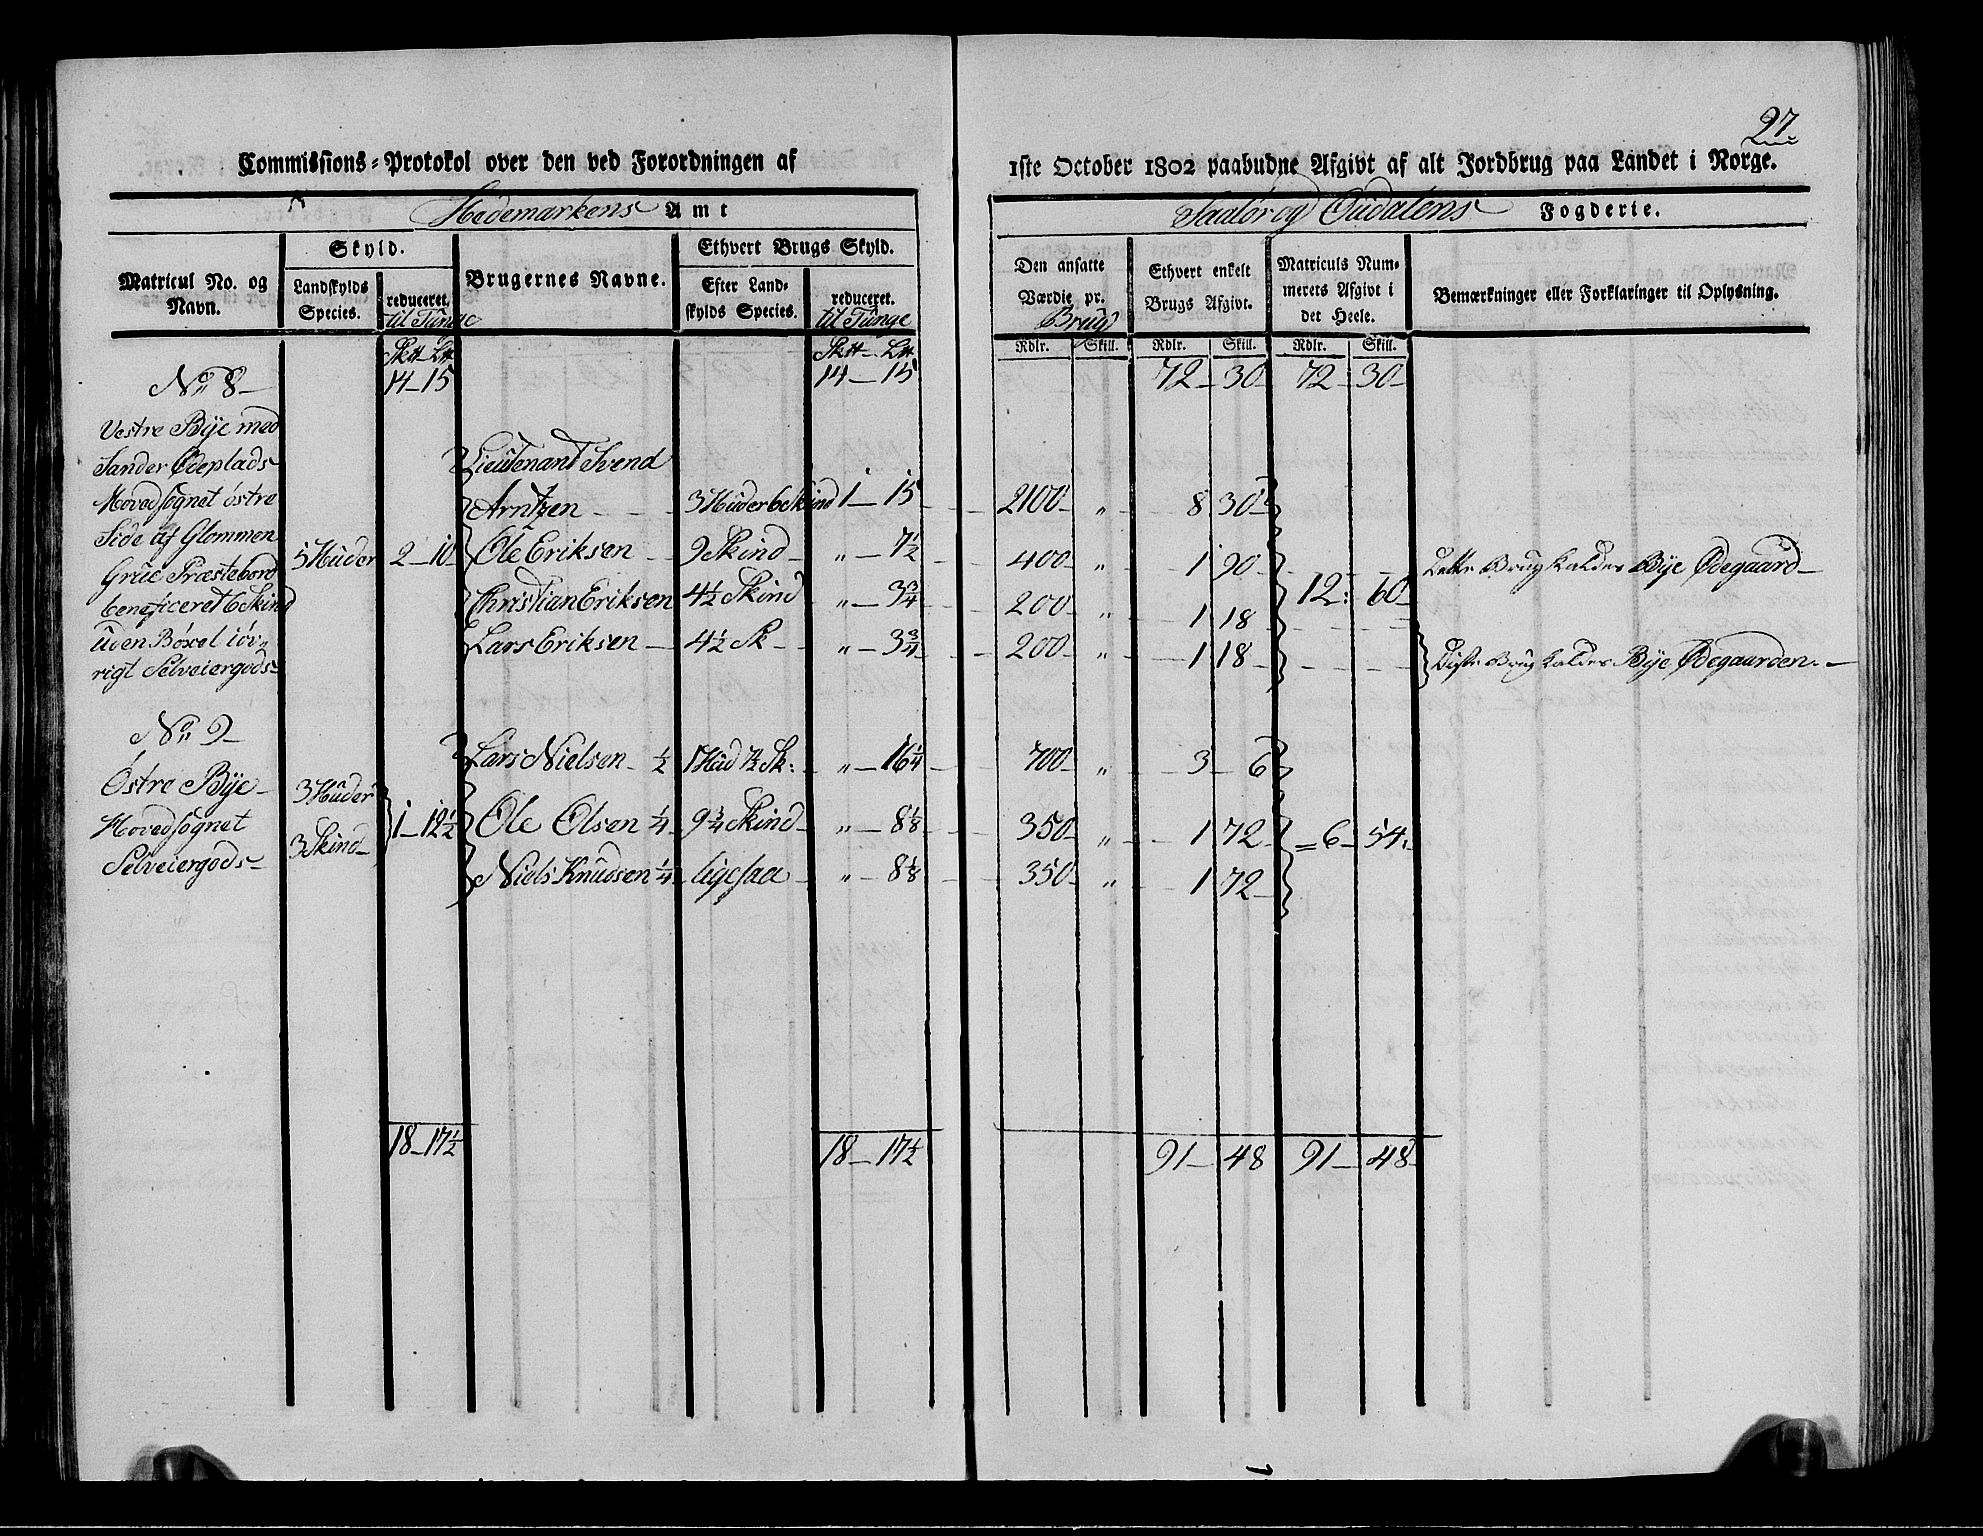 27.
Commissions-Protokol over den ved Forordningen af 1ste October 1802 paabudne Afgivt af alt Jordbrug paa Landet i Norge.
Hedemarkens Amt
Saalør og Oudalens Fogderie.
Matricul No. og Navn.
Skyld.
Landskylds Species.
reduceret. til Tunge
Brugernes Navne.
Ethvert Brugs Skyld.
Efter Landskylds Species.
reduceret. til Tunge
Den ansatte Værdie pr. Brug
Ethvert enkelt Brugs Afgivt.
Matriculs Nummerets Afgivt i det Heele.
Bemærkninger eller Forklaringer til Oplysning.
Rdlr. Skill. Rdlr. Skill. Rdlr. Skill.
14 – 15 14 – 15 72 – 30 72 – 30
No. 8
Vestre Bÿe med
Sander Ødeplads
Hovedsognet østre
Side af Glommen
Grüe Præstebord
beneficeret 6 Skind
uden Bóxel ióv-
rigt Selveiergods
5 Hüder 2 – 10
Lieutenant Svend
Arntzen 3 Hüder 6 Skind 1 – 15 2100 „ 8 30
Ole Eriksen 9 Skind „ – 7½ 400 „ 1 90 Dette Brug kaldes Bÿe Ødegaard
Christian Eriksen 4½ Skind „ – 3¾ 200 „ 1 18 12: 60
Lars Eriksen 4½ Sk „ – 3¾ 200 „ 1 18 Disse Brug kaldes Bÿe Ødegaarden.
No. 9
Östre Bÿe
Hovedsognet
Selveiergods
3 Hüder
3 Skind
1 – 12½
Lars Nielsen ½ 1 Hüd 7½ Sk: „ – 16¼ 700 „ 3 – 6
Ole Olsen ¼ 9¾ Skind „ – 8⅛ 350 „ 1 72 6 – 54.
Niels Knüdsen ¼ ligesaa „ – 8⅛ 350 „ 1 72
18 – 17½ 18 – 17½ 91 – 48 91 – 48